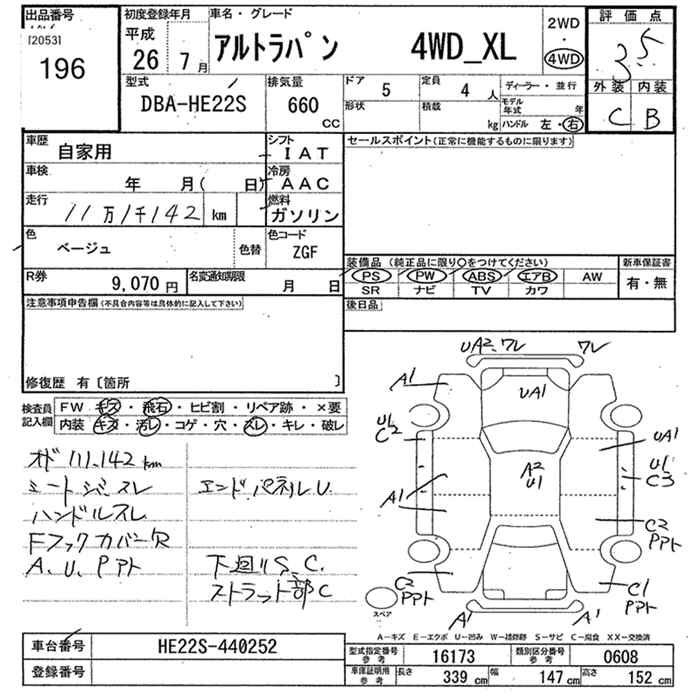 出品番号
[2053]
196
初度登録年月
平成
26 7月
車名・グレード
アルトラパン 4WD_XL
2WD
・
4WD
評価点
3.5
外装 内装
C B
型式
DBA-HE22S
排気量
660
cc
ドア 5
定員 4 人
形状
積載 kg
ディーラー・並行
モデル年式 年
ハンドル 左・右
車歴
自家用
シフト
IAT
車検
年 月( 日)
冷房
AAC
走行
11万1千142 km
燃料
ガソリン
色
ベージュ
色替
色コード
ZGF
R券
9,070 円
名変通知期限
月 日
セールスポイント(正常に機能するものに限ります)
装備品(純正品に限り○をつけてください)
PS PW ABS エアB AW
SR ナビ TV カワ
新車保証書
有・無
後日品
注意事項申告欄(不具合内容等は具体的に記入して下さい)
修復歴 有〔箇所 〕
検査員
記入欄
FW キズ・飛石・ヒビ割・リペア跡・×要
内装 キズ・汚レ・コゲ・穴・スレ・キレ・破レ
オド 111.142 km
シートシミスレ
ハンドルスレ
Fフックカバー欠
A.U.Pアト
エンドパネルU
下回りS.C.
ストラット部C
UA2.ワレ ワレ
A1 A1
UA1
U1
C2
UA1
U1
C3
A2
U1
A1
C2
Pアト
C2
Pアト
C1
Pアト
A1 A1
スペア
A-キズ E-エクボ U-凹み W-補修跡 S-サビ C-腐食 XX-交換済
車台番号
HE22S-440252
登録番号
型式指定番号
参考
16173
類別区分番号
参考
0608
車庫証明用
参考
長さ 339 cm 幅 147 cm 高さ 152 cm